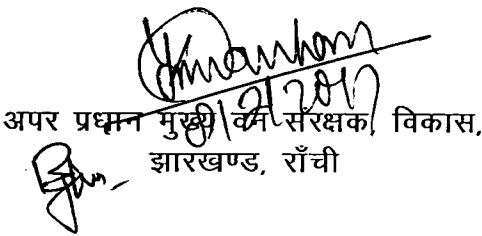 8/2/2017
अपर प्रधान मुख्य वन संरक्षक, विकास,
झारखण्ड, राँची